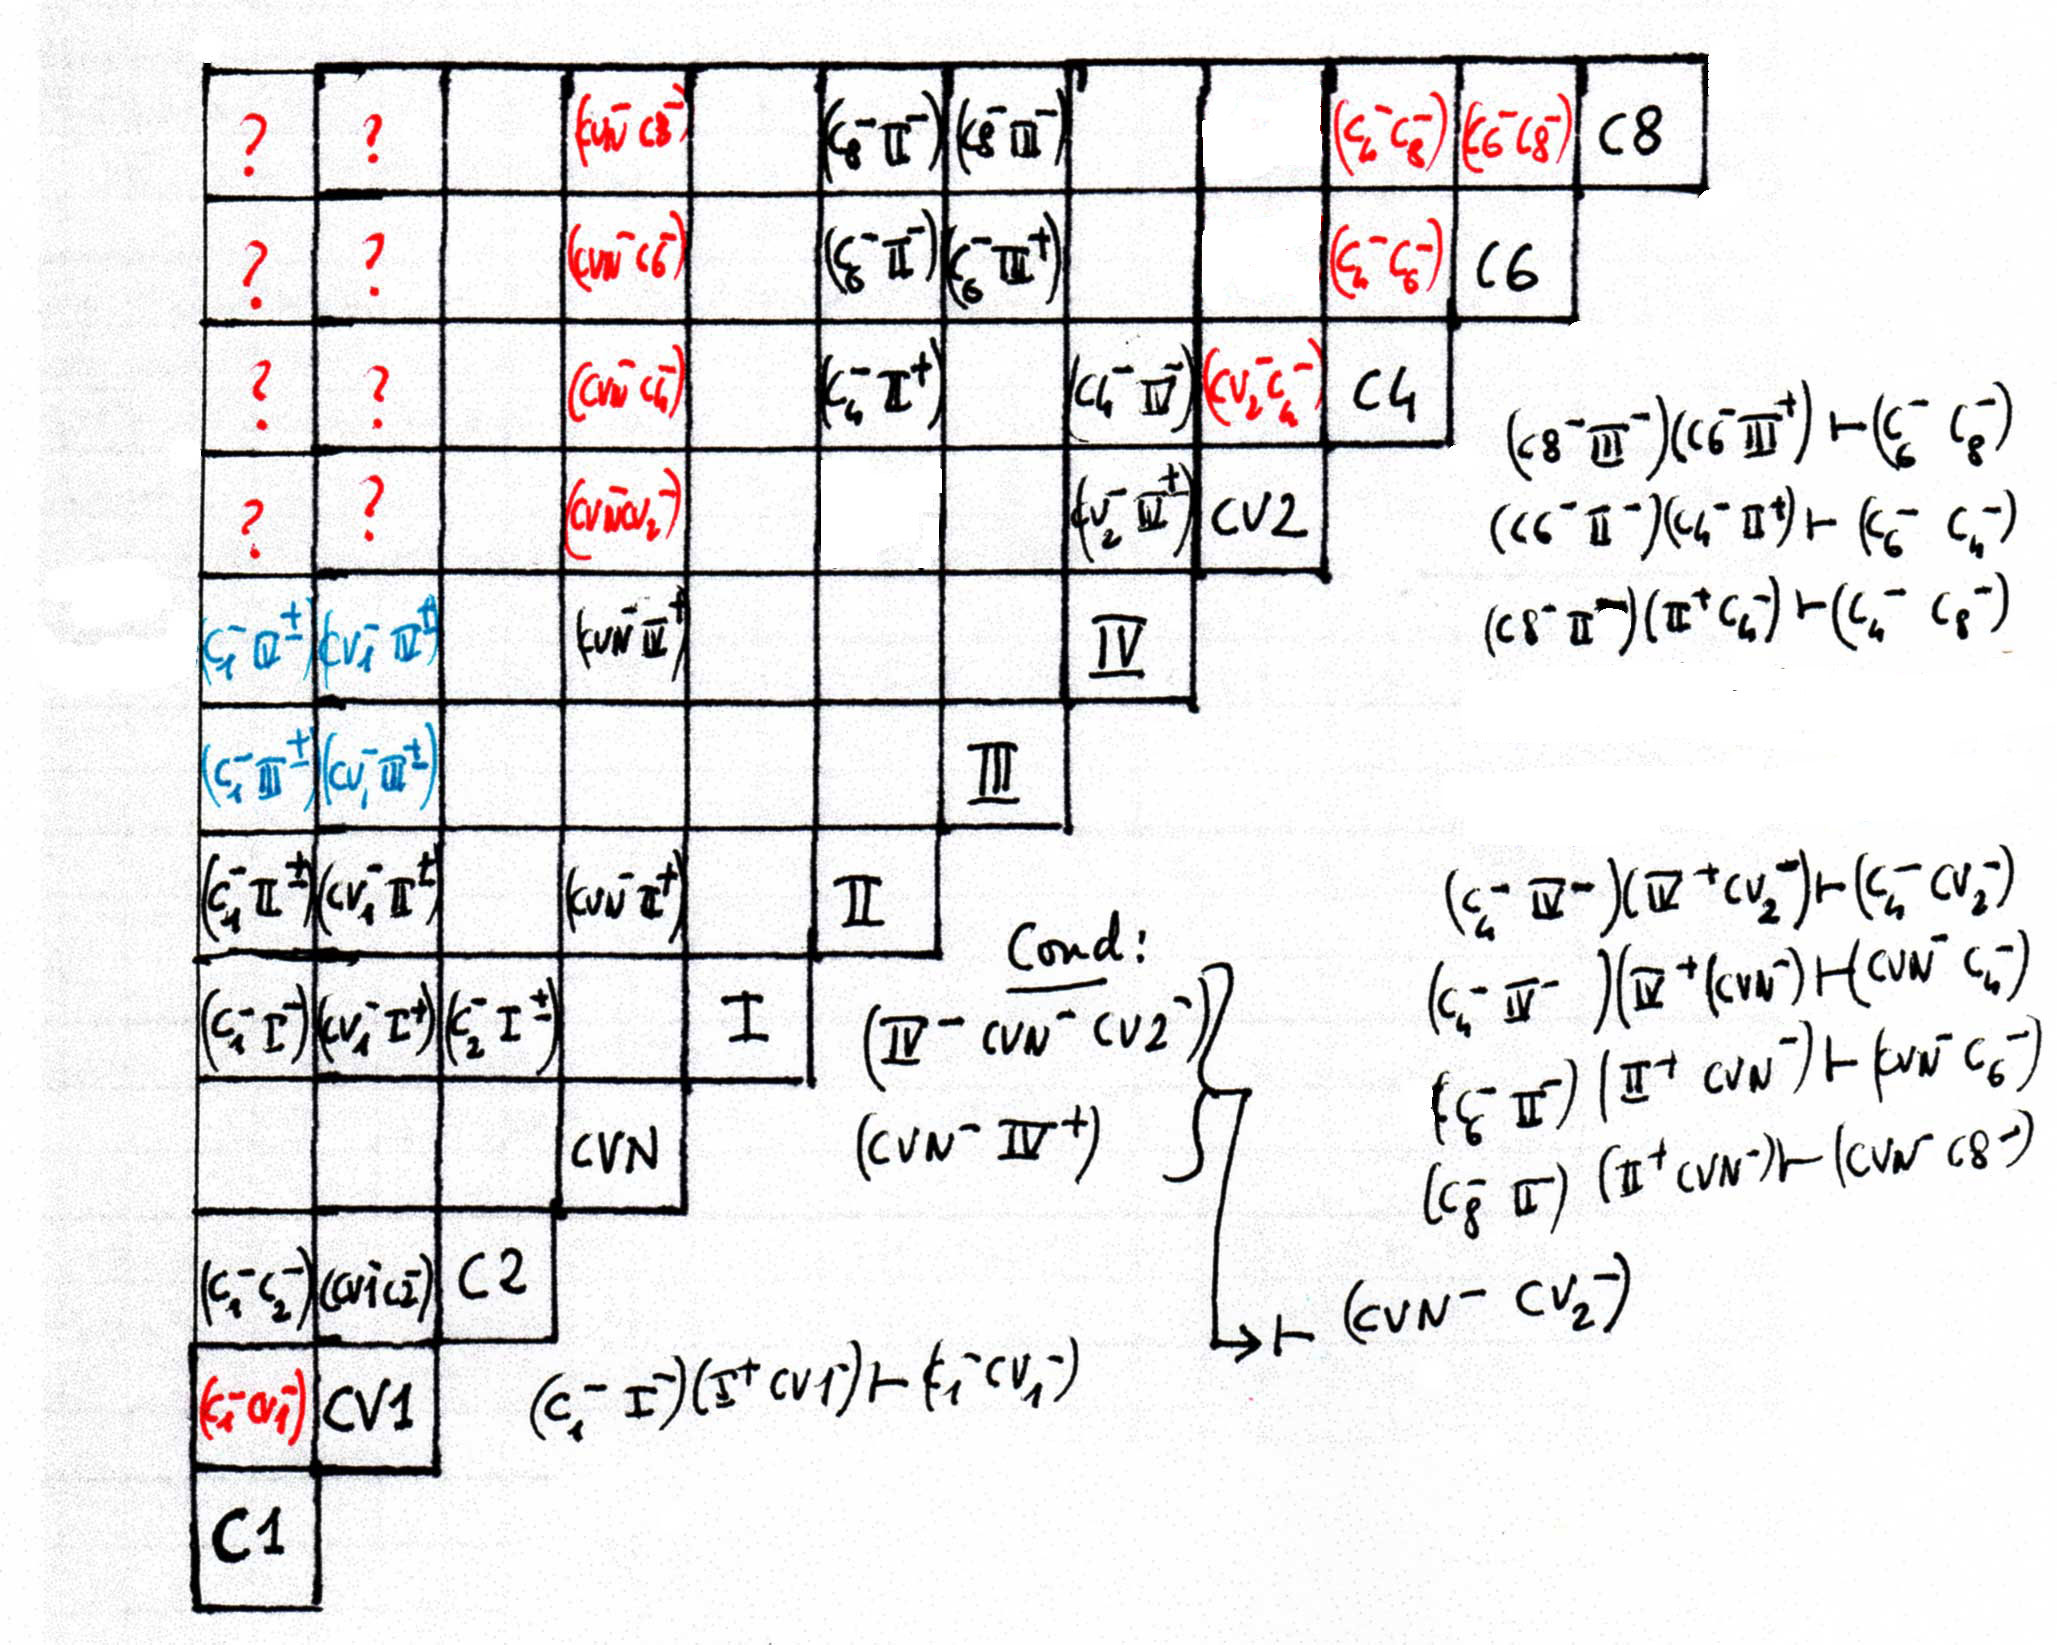 ? ? (CVN⁻ C8⁻) (C₈⁻ II⁻) (C8⁻ III⁻) (C₄⁻ C₈⁻) (C6⁻ C8⁻) C8
? ? (CVN⁻ C6⁻) (C₆⁻ II⁻) (C₆⁻ III⁺) (C₄⁻ C₆⁻) C6
? ? (CVN⁻ C4⁻) (C₄⁻ II⁺) (C4⁻ IV⁻) (CV₂⁻ C₄⁻) C4
? ? (CVN⁻ CV₂⁻) (CV₂⁻ IV⁺) CV2
(C₁⁻ IV±) (CV1⁻ IV±) (CVN⁻ IV⁺) IV
(C₁⁻ III±) (CV₁⁻ III±) III
(C₁⁻ II±) (CV₁⁻ II±) (CVN⁻ II⁺) II
(C₁⁻ I⁻) (CV₁⁻ I⁺) (C₂⁻ I±) I
CVN
(C₁⁻ C₂⁻) (CV1⁻ C2⁻) C2
(C₁⁻ CV1⁻) CV1
C1
(C8⁻ III⁻)(C6⁻ III⁺) ⊢ (C₆⁻ C₈⁻)
(C6⁻ II⁻)(C4⁻ II⁺) ⊢ (C₆⁻ C₄⁻)
(C8⁻ II⁻)(II⁺ C₄⁻) ⊢ (C₄⁻ C8⁻)
Cond:
(IV⁻ CVN⁻ CV2⁻)
(CVN⁻ IV⁺)
(C₄⁻ IV⁻)(IV⁺ CV₂⁻) ⊢ (C₄⁻ CV₂⁻)
(C₄⁻ IV⁻)(IV⁺ (CVN⁻) ⊢ (CVN⁻ C₄⁻)
(C₆⁻ II⁻) (II⁺ CVN⁻) ⊢ (CVN⁻ C₆⁻)
(C₈⁻ II⁻) (II⁺ CVN⁻) ⊢ (CVN⁻ C8⁻)
→ ⊢ (CVN⁻ CV₂⁻)
(C₁⁻ I⁻)(I⁺ CV1⁻) ⊢ (C₁⁻ CV₁⁻)